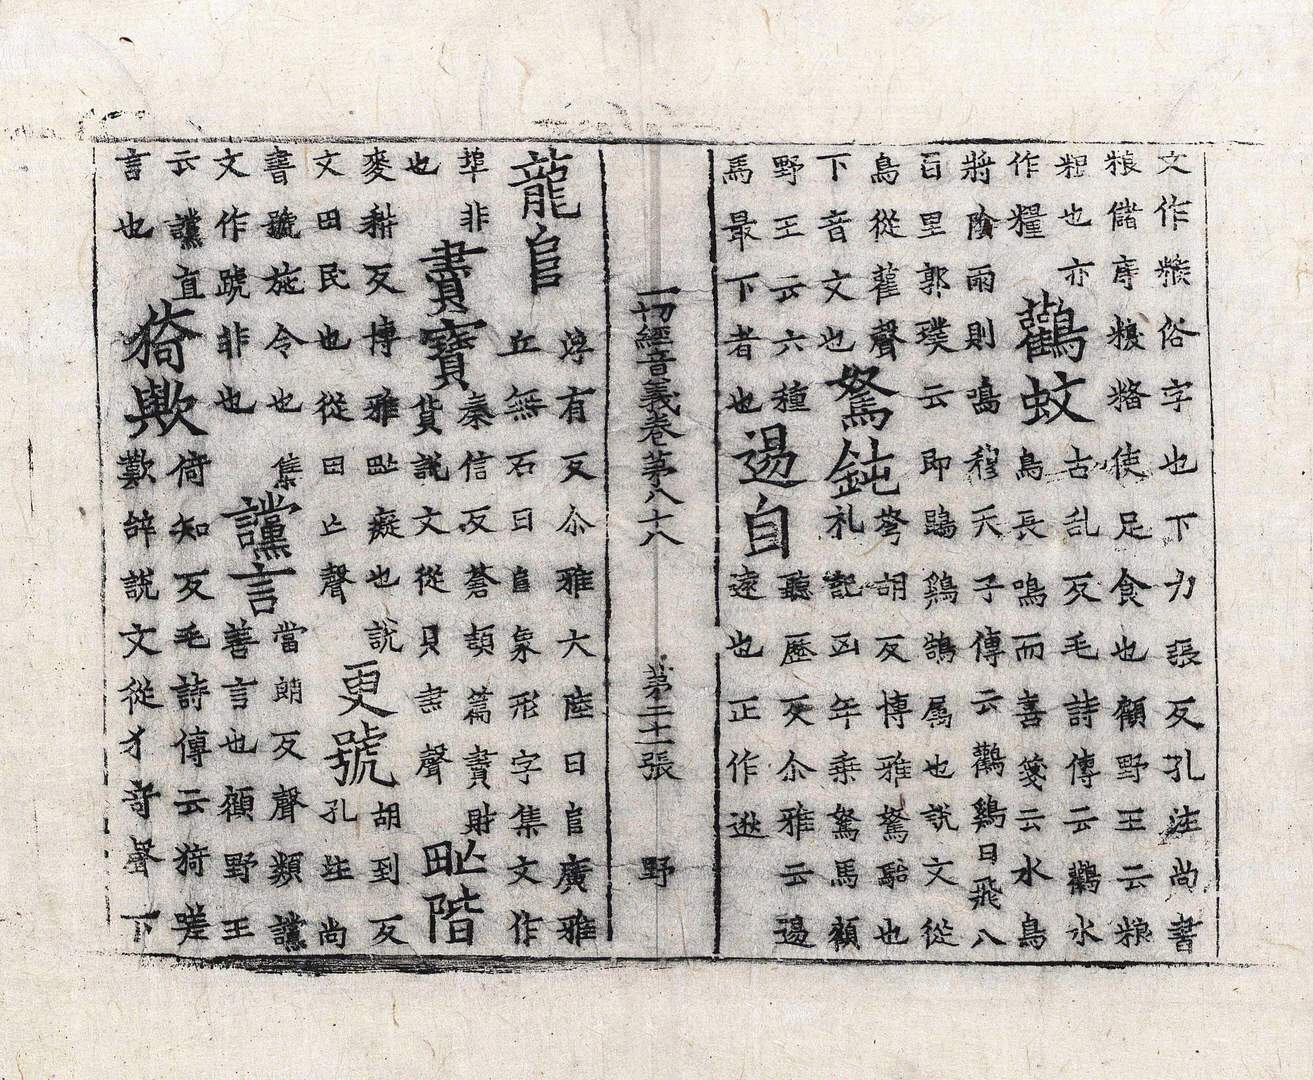 文作糇俗字也下力張反孔注尚書
粮儲庤糗粮使足食也顧野王云粮
粻也亦
作糧
鸛蚊
古乱反毛詩傳云鸛水
鳥長鳴而喜箋云水鳥
將陰雨則鳴穆天子傳云鸛鷄日飛八
百里郭璞云即鵾鷄鵠属也說文從
鳥從雚聲
下音文也
駑鈍
滂胡反博雅駑駘也
礼記凶年乗駑馬顧
野王云六種
馬最下者也
逷自
聽歷反尒雅云逷
遠也正作逖
一切經音義卷第八十八 第二十一張 野
龍𨸏
浮有反尒雅大陸曰𨸏廣雅
丘無石曰𨸏象形字集文作
埠非
也
賮寳
秦信反蒼頡篇賮財
貨說文從貝㶳聲
甿階
麥耕反博雅甿癡也說
文田民也從田亾聲
更號
胡到反
孔注尚
書號施令也集
文作號非也
讜言
當朗反聲類讜
善言也顧野王
云讜直
言也
猗歟
倚知反毛詩傳云猗嗟
歎辞說文從犬奇聲下